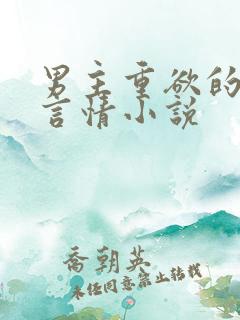 男主重欲的
言情小说
乔朝英
未经同意禁止转载